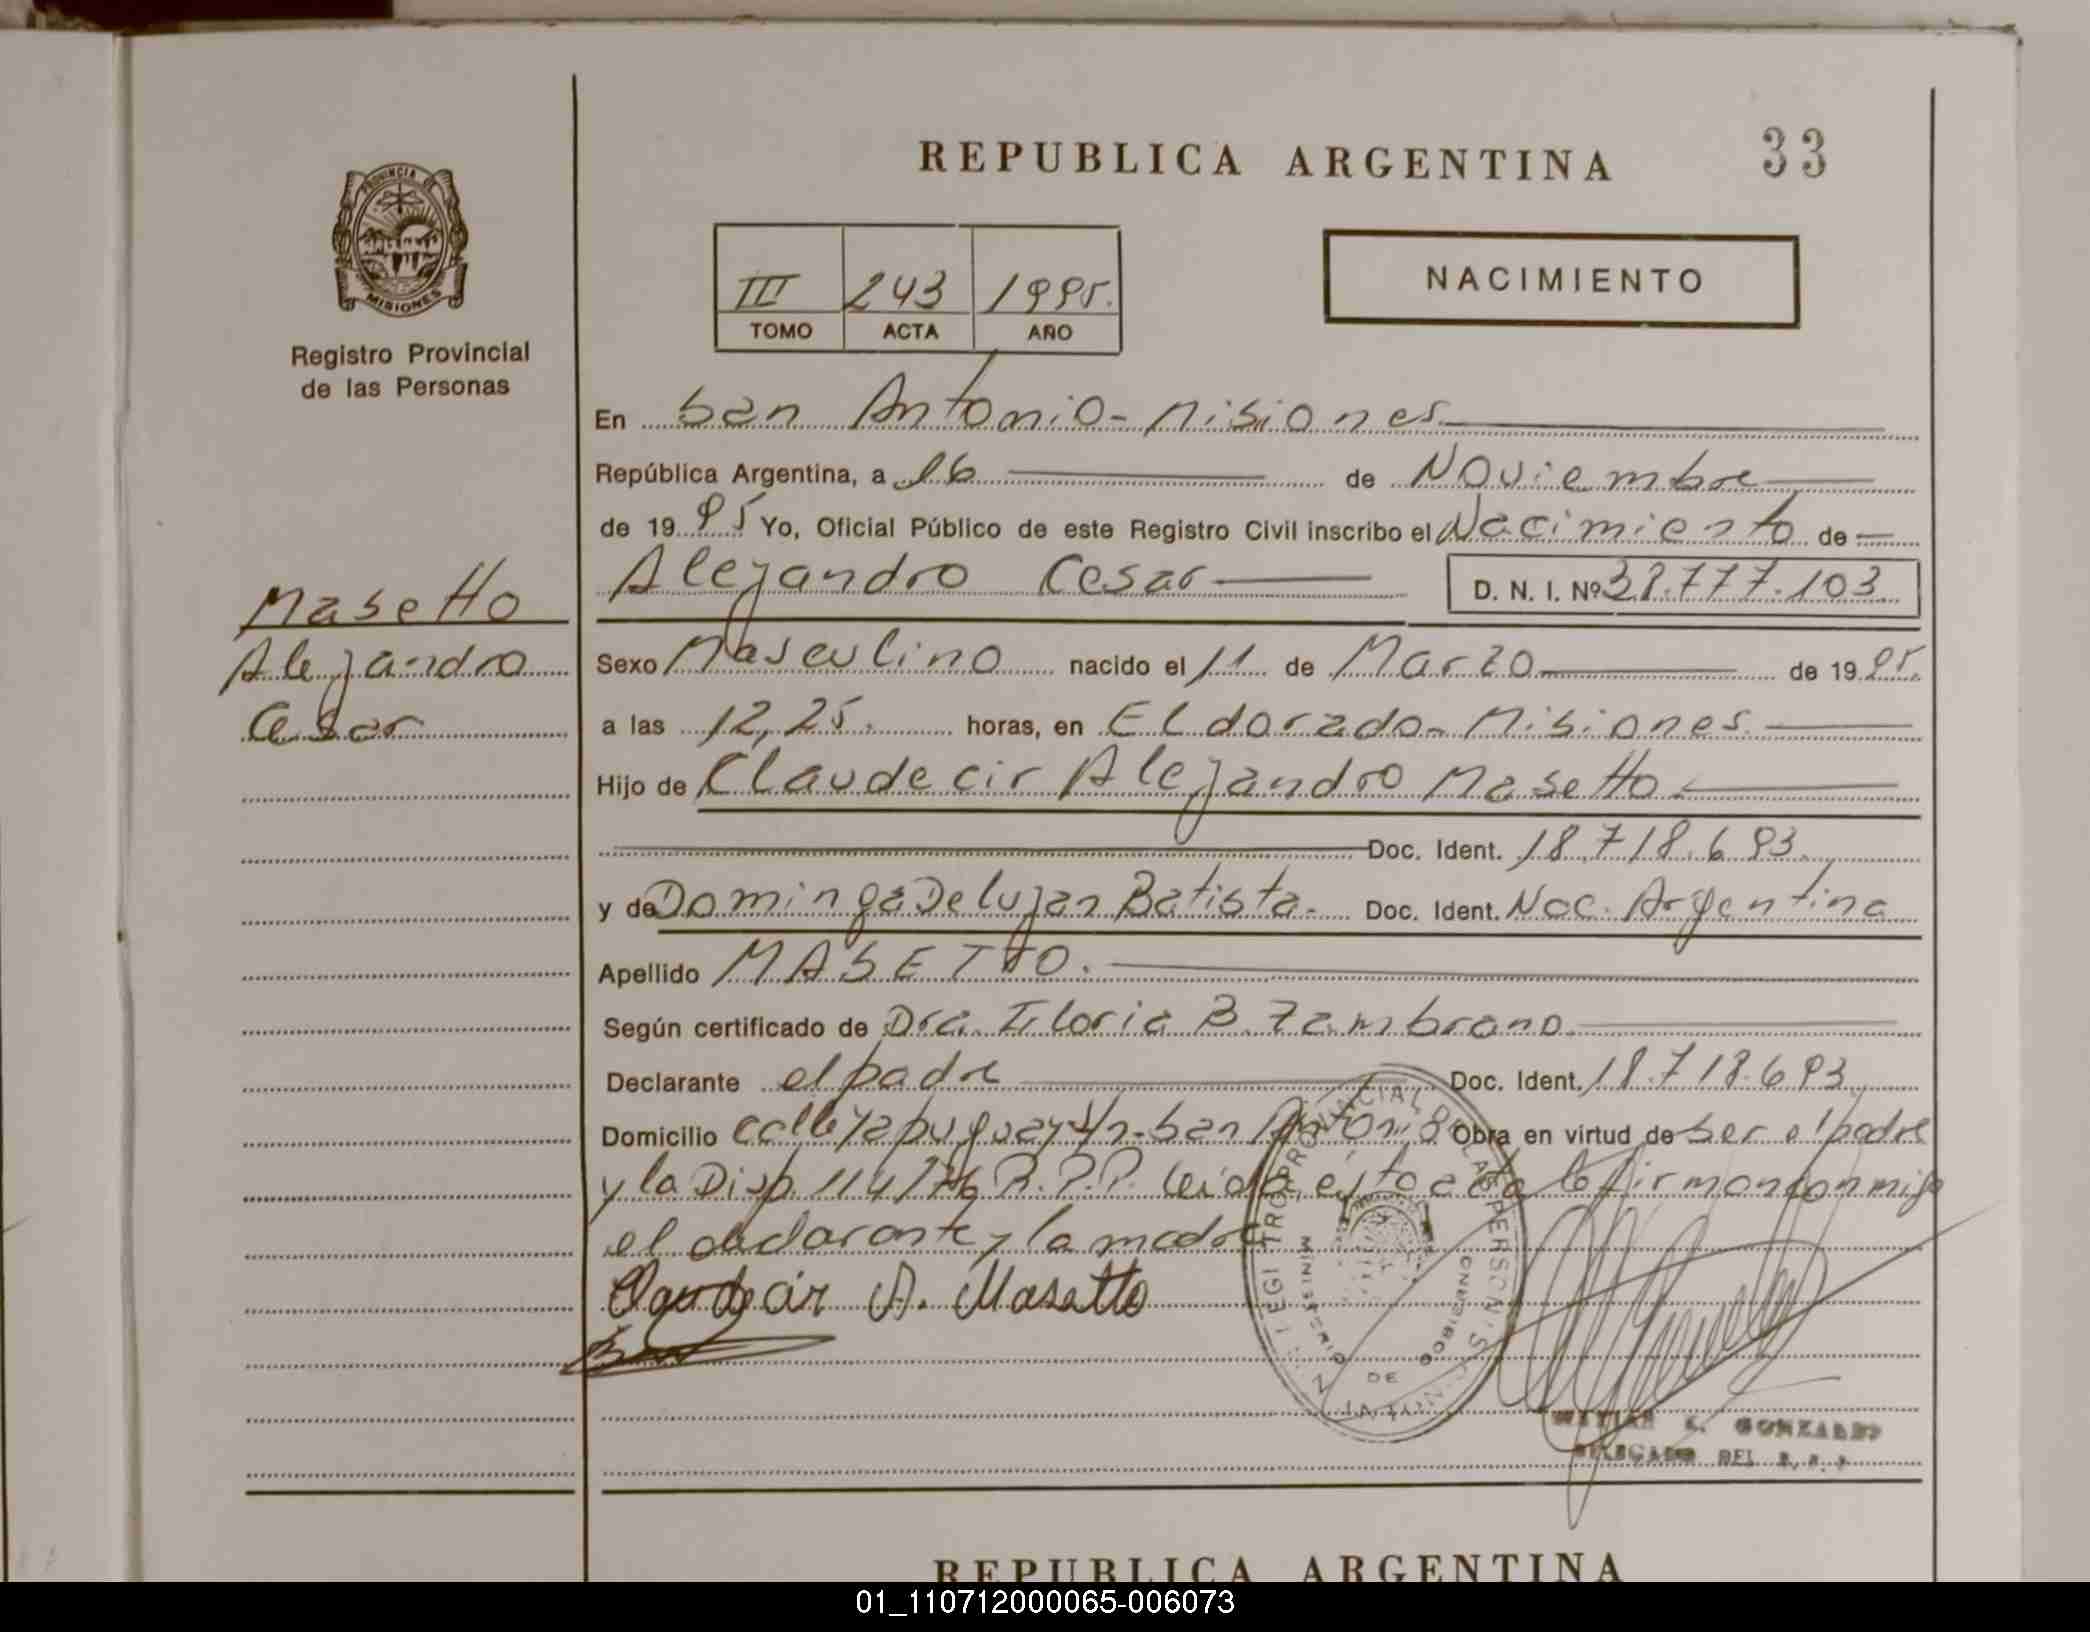 REPUBLICA ARGENTINA
33
PROVINCIA DE
MISIONES
Registro Provincial
de las Personas
III 243 1995.
TOMO ACTA AÑO
NACIMIENTO
En San Antonio-Misiones
República Argentina, a 16 de Noviembre
de 1995 Yo, Oficial Público de este Registro Civil inscribo el Nacimiento de
Alejandro Cesar D. N. I. Nº 38.777.103
Masetto
Alejandro
Cesar
Sexo Masculino nacido el 11 de Marzo de 1995.
a las 12,25. horas, en Eldorado-Misiones
Hijo de Claudecir Alejandro Masetto
Doc. Ident. 18.718.693.
y de Dominga De lujan Batista. Doc. Ident. Nac. Argentina
Apellido MASETTO.
Según certificado de Dra. B. Zambrano
Declarante el padre Doc. Ident. 18.718.693
Domicilio calle Yapuguay S/n-San Antonio Obra en virtud de ser el padre
y la Disp. 114/76 R.P.P. leida esta acta la firman conmigo
el declarante y la madre
Claudecir A. Masetto
MINISTERIO DE GOBIERNO
GONZALEZ
DELEGADO DEL R. P. P.
REPUBLICA ARGENTINA
01_110712000065-006073